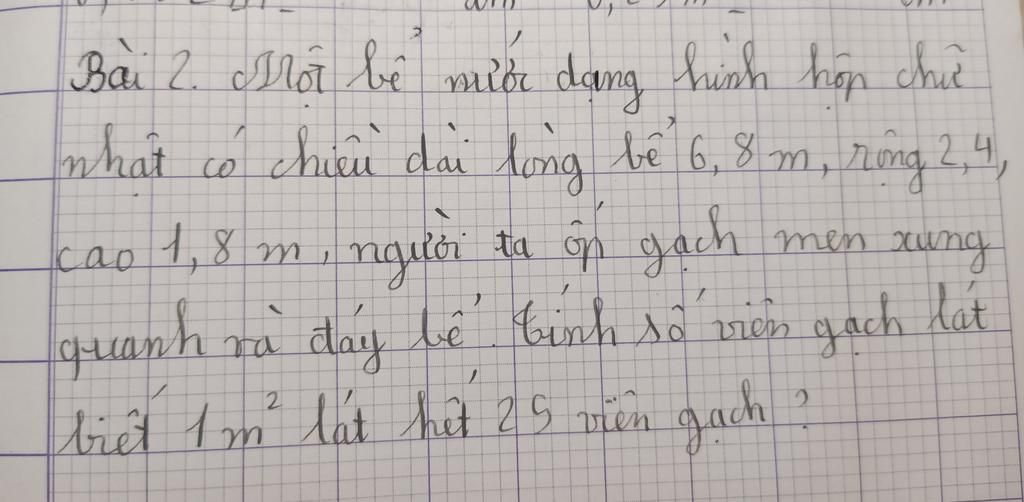 Bài 2. Một bể nước dạng hình hộp chữ
nhật có chiều dài lòng bể 6,8 m, rộng 2,4,
cao 1,8 m, người ta ốp gạch men xung
quanh và đáy bể. tính số viên gạch lát
biết 1 m² lát hết 25 viên gạch?